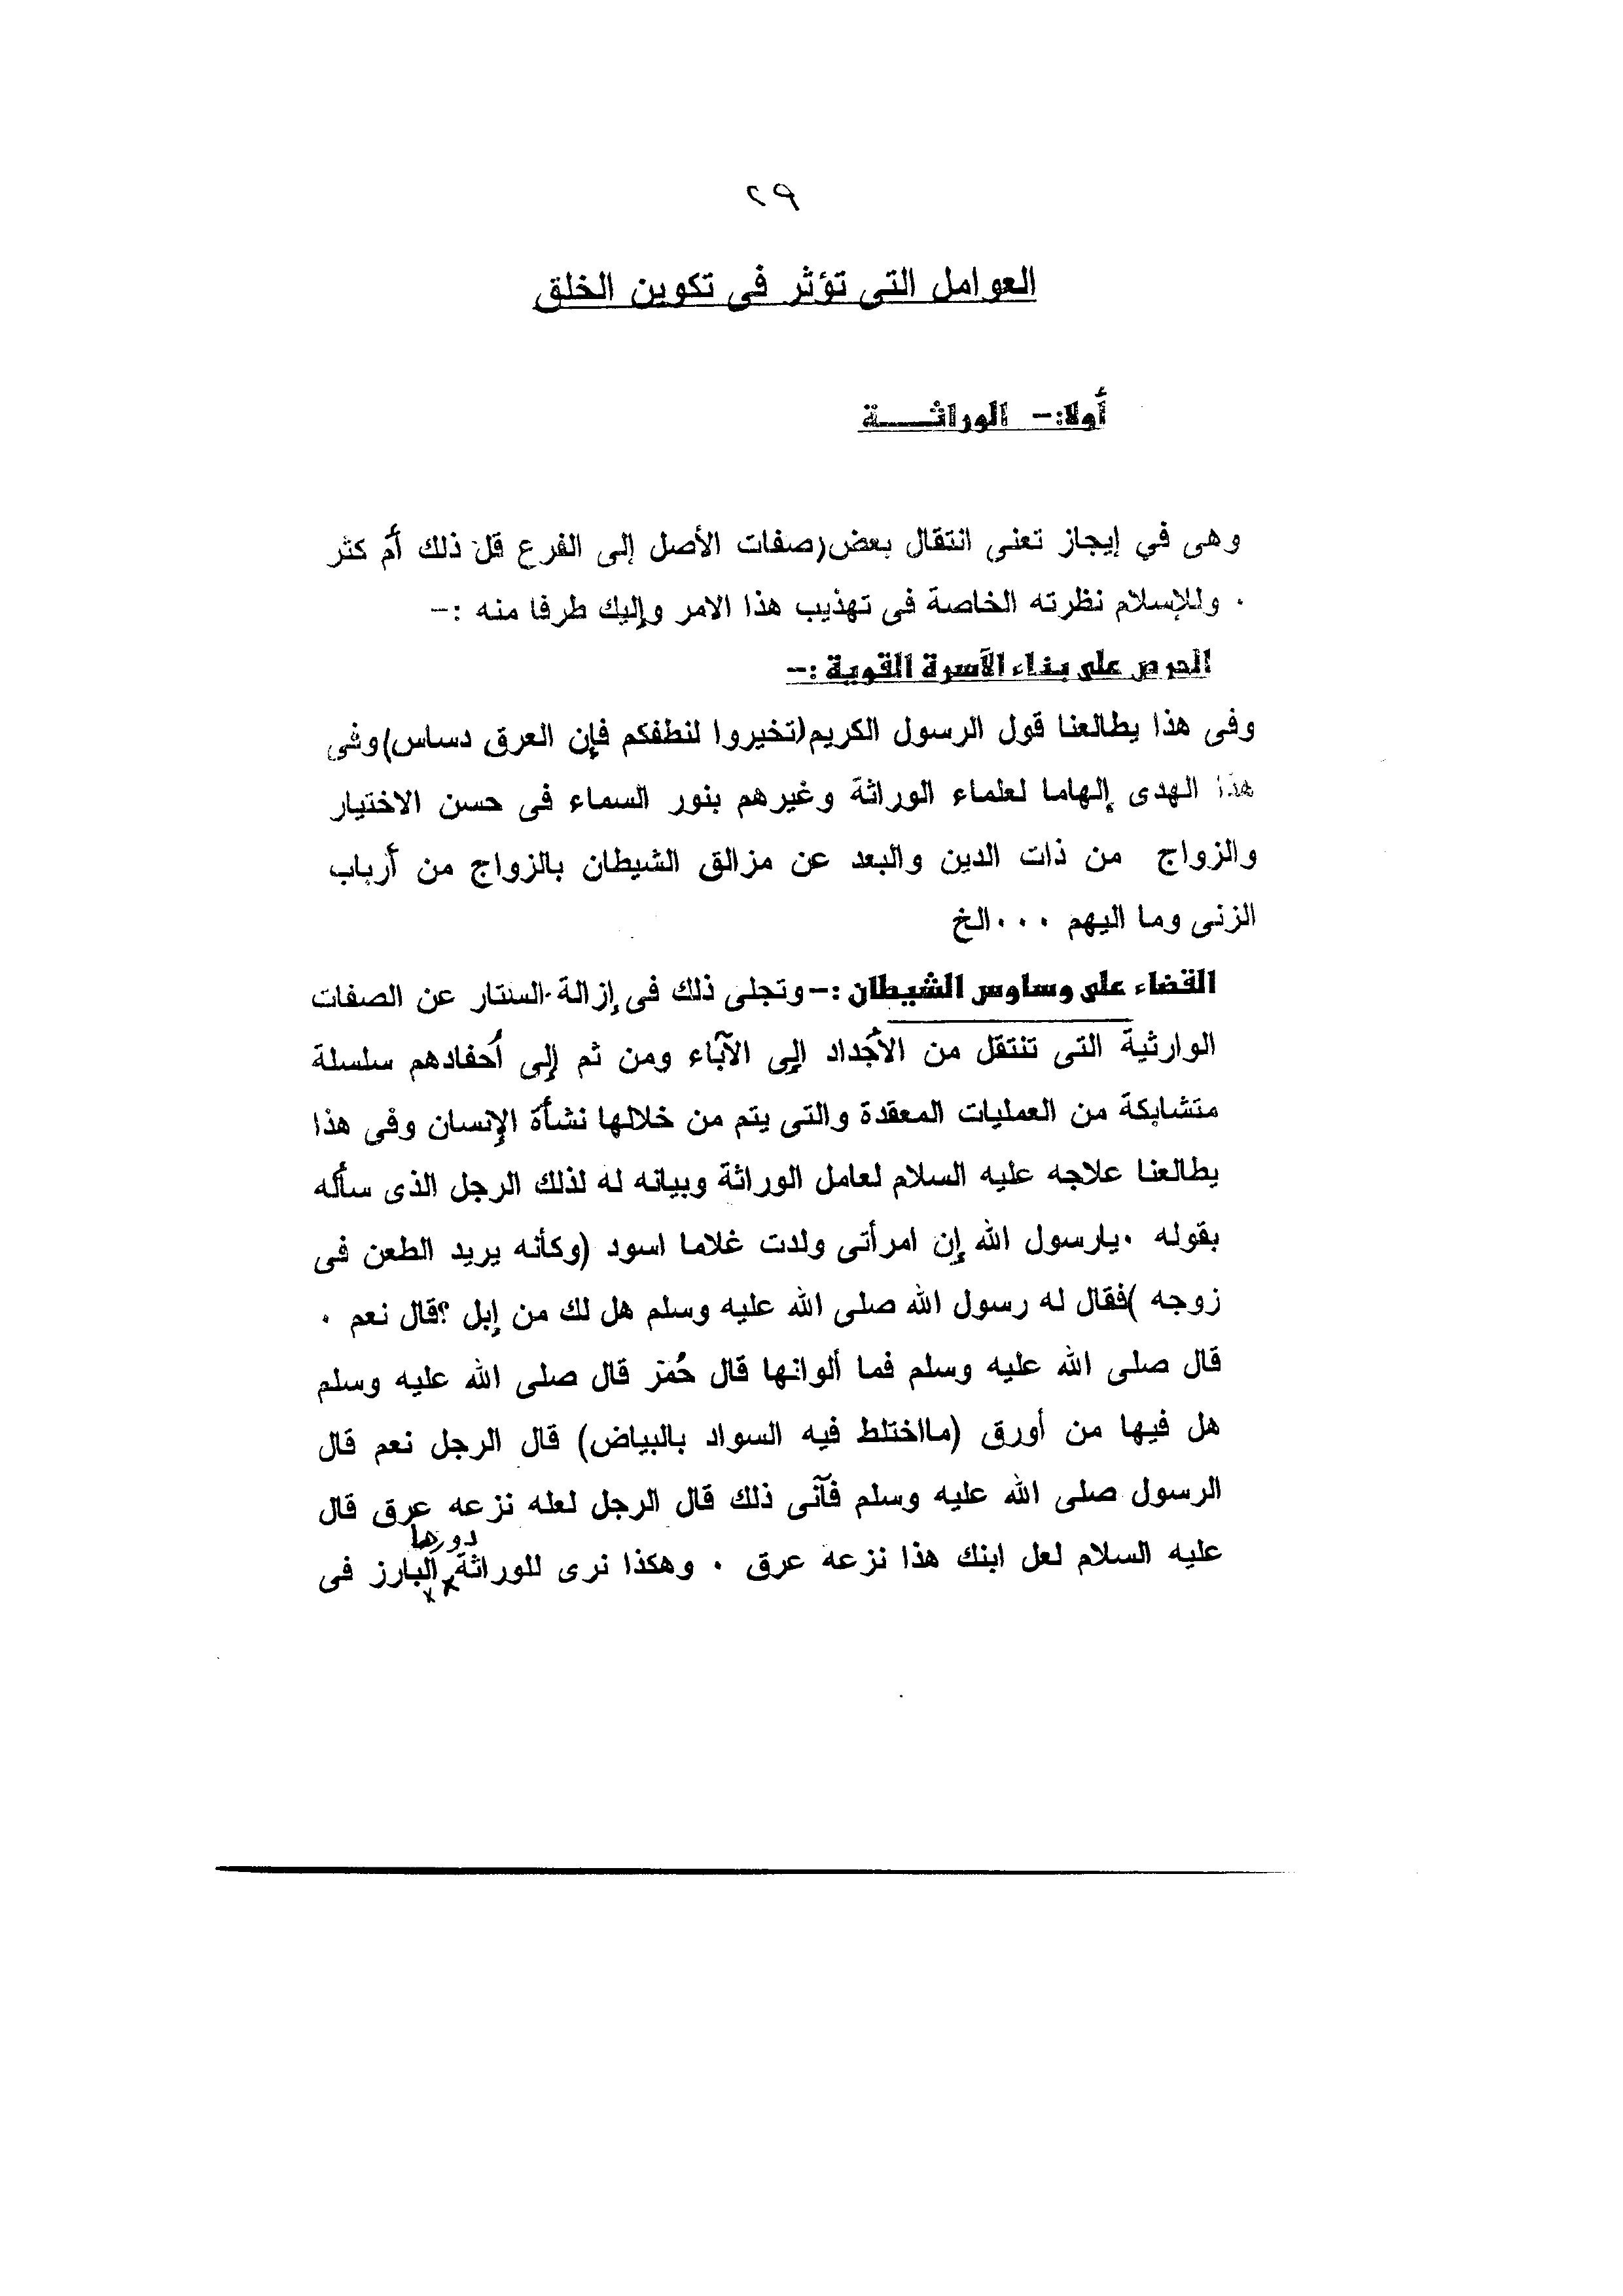 ٢٩
العوامل التى تؤثر فى تكوين الخلق
أولا:- الوراثـــــة
وهى في إيجاز تعنى انتقال بعض(صفات الأصل إلى الفرع قل ذلك أم كثر
. وللإسلام نظرته الخاصة فى تهذيب هذا الامر وإليك طرفا منه :-
الحرص على بناء الآسرة القوية :-
وفى هذا يطالعنا قول الرسول الكريم(تخيروا لنطفكم فإن العرق دساس)وفى
هذا الهدى إلهاما لعلماء الوراثة وغيرهم بنور السماء فى حسن الاختيار
والزواج من ذات الدين والبعد عن مزالق الشيطان بالزواج من أرباب
الزنى وما اليهم ...الخ
القضاء على وساوس الشيطان :-وتجلى ذلك فى إزالة الستار عن الصفات
الوارثية التى تنتقل من الأجداد إلى الآباء ومن ثم إلى أحفادهم سلسلة
متشابكة من العمليات المعقدة والتى يتم من خلالها نشأة الإنسان وفى هذا
يطالعنا علاجه عليه السلام لعامل الوراثة وبيانه له لذلك الرجل الذى سأله
بقوله .يارسول الله إن امرأتى ولدت غلاما اسود (وكأنه يريد الطعن فى
زوجه )فقال له رسول الله صلى الله عليه وسلم هل لك من إبل ؟قال نعم .
قال صلى الله عليه وسلم فما ألوانها قال حُمر قال صلى الله عليه وسلم
هل فيها من أورق (مااختلط فيه السواد بالبياض) قال الرجل نعم قال
الرسول صلى الله عليه وسلم فآنى ذلك قال الرجل لعله نزعه عرق قال
عليه السلام لعل ابنك هذا نزعه عرق . وهكذا نرى للوراثة دورها البارز فى